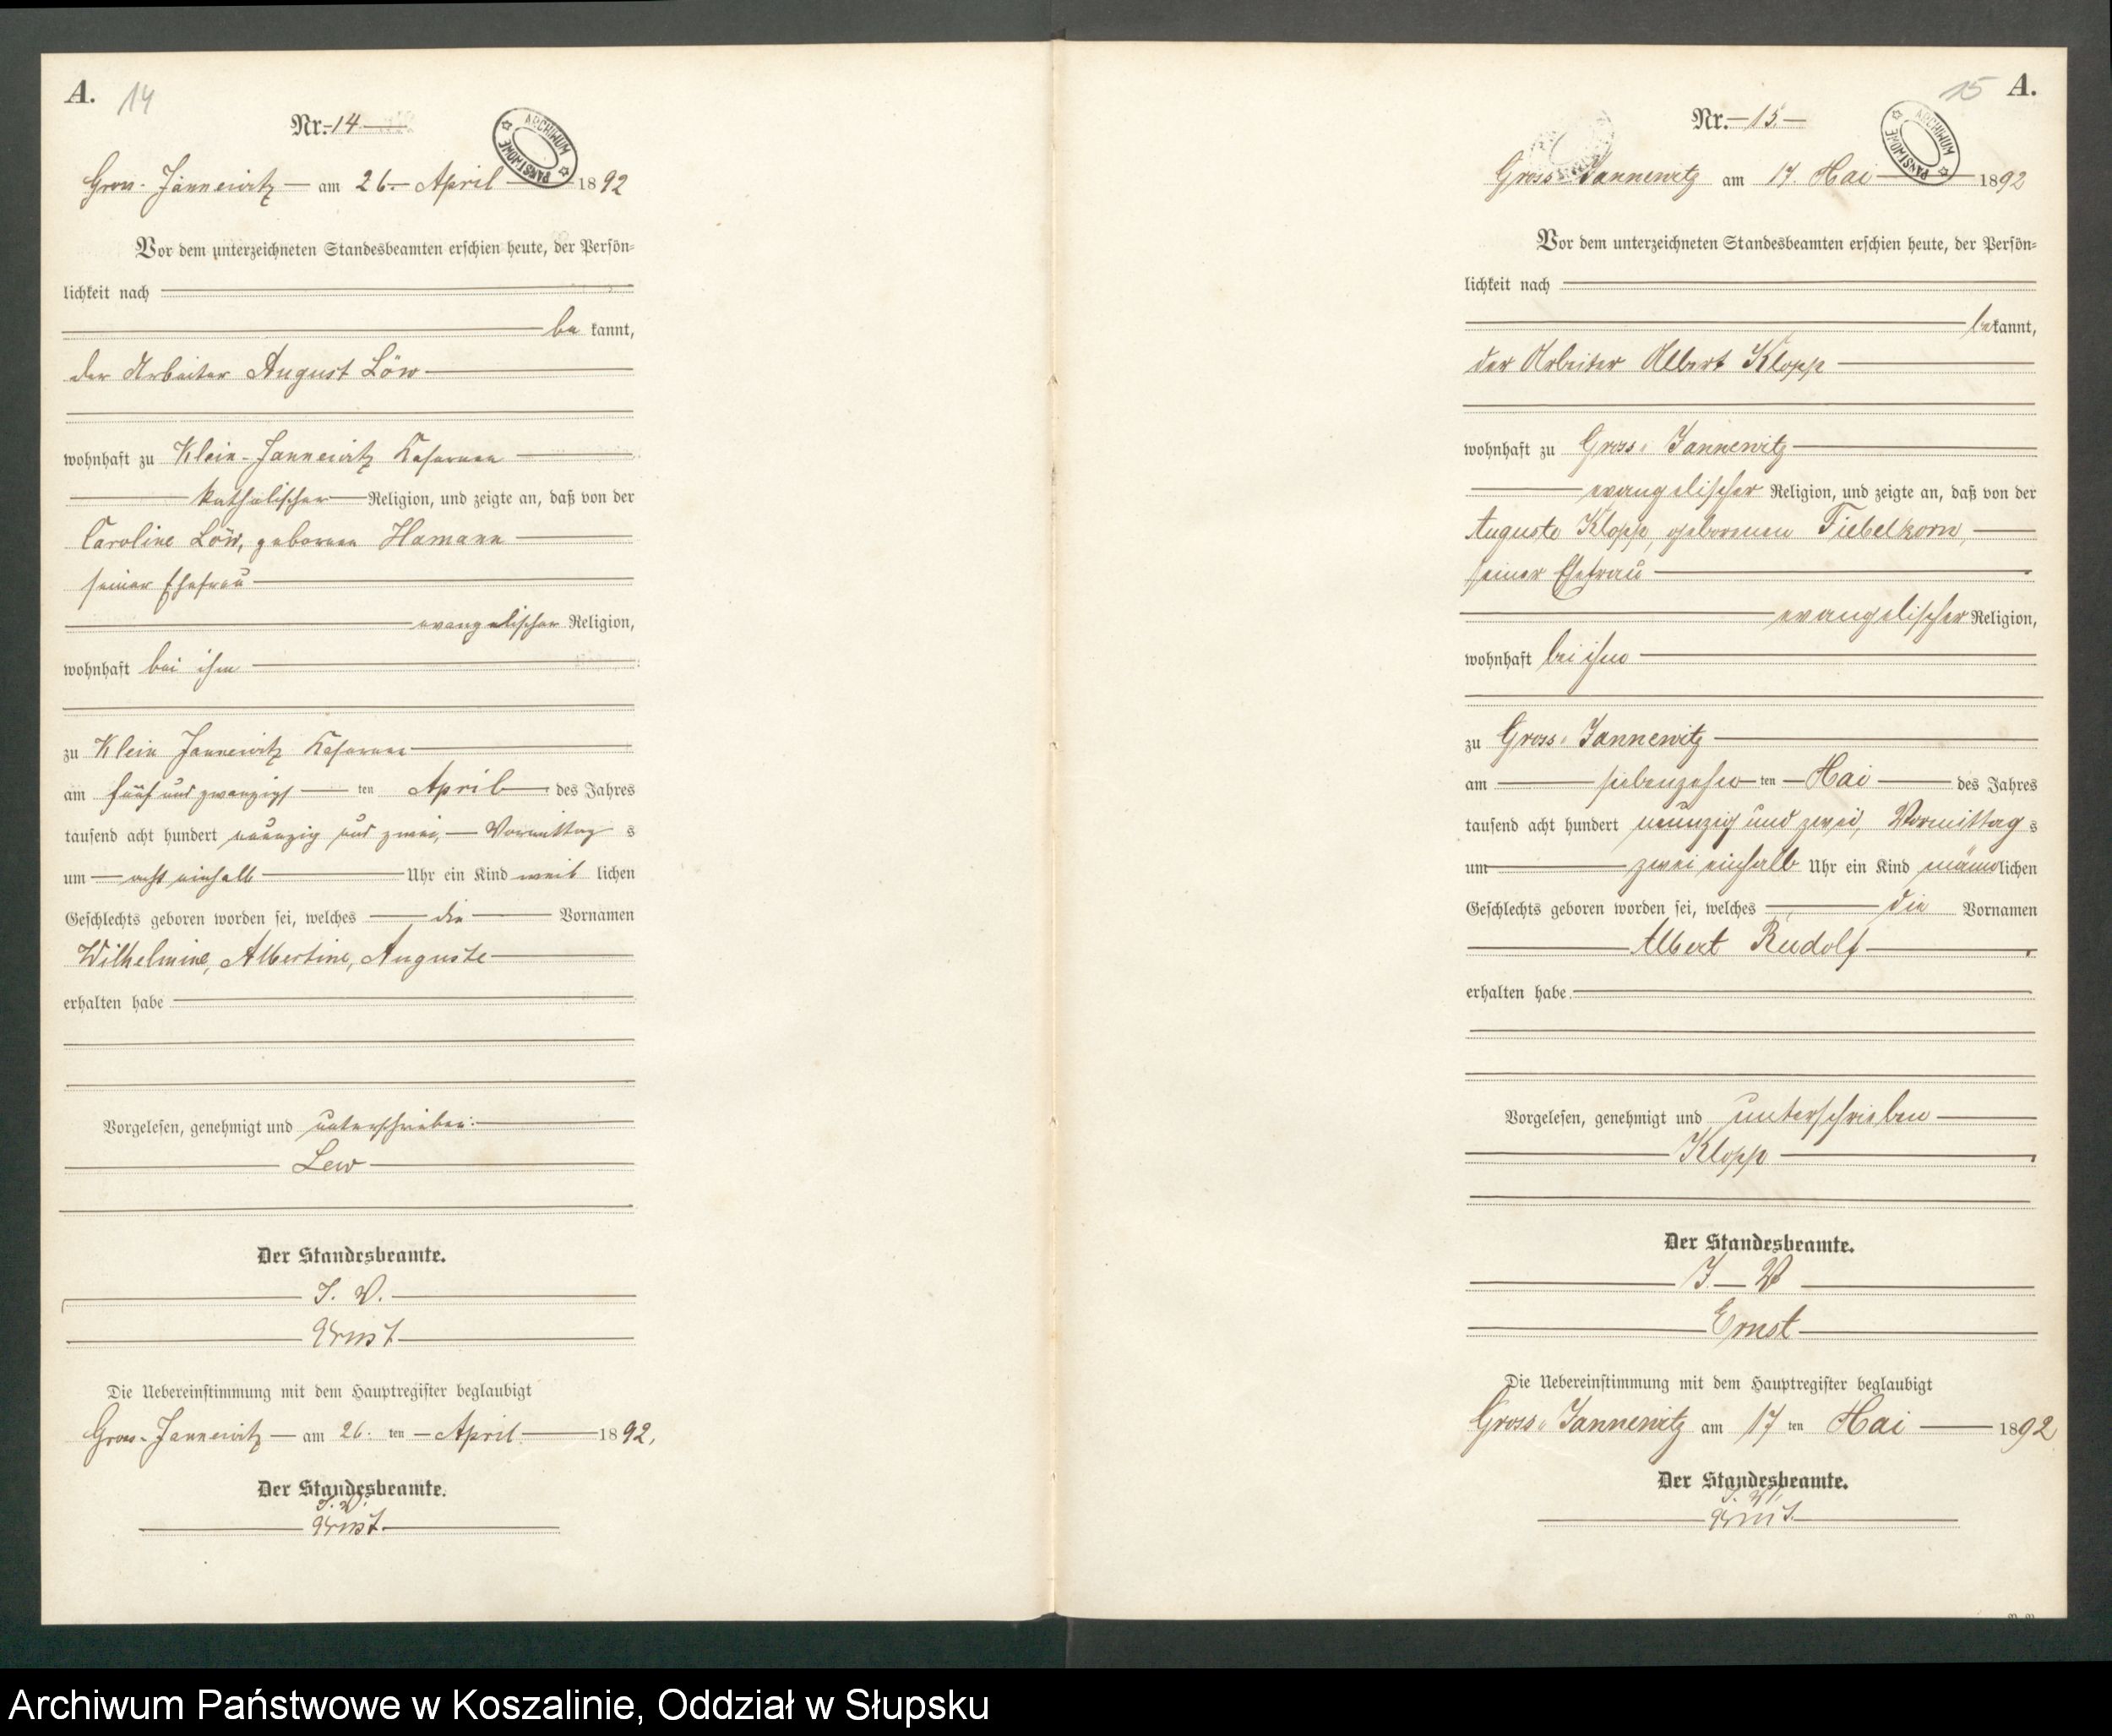 A. 14
Nr. 14
ARCHIWUM PAŃSTWOWE
Gross-Jannewitz am 26. April 1892
Vor dem unterzeichneten Standesbeamten erschien heute, der Persön-
lichkeit nach
be kannt,
der Arbeiter August Löw
wohnhaft zu Klein-Jannewitz
katholischer Religion, und zeigte an, daß von der
Caroline Löw, geborenen Hamann
seiner Ehefrau
evangelischer Religion,
wohnhaft bei ihm
zu Klein Jannewitz
am fünf und zwanzigs ten April des Jahres
tausend acht hundert neunzig und zwei, Vormittag s
um acht einhalb Uhr ein Kind weib lichen
Geschlechts geboren worden sei, welches die Vornamen
Wilhelmine, Albertine, Auguste
erhalten habe
Vorgelesen, genehmigt und unterschrieben:
Lew
Der Standesbeamte.
I. V.
Ernst
Die Uebereinstimmung mit dem Hauptregister beglaubigt
Gross-Jannewitz am 26. ten April 1892.
Der Standesbeamte.
I. V.
Ernst
15 A.
Nr. 15
ARCHIWUM PAŃSTWOWE
Gross-Jannewitz am 17. Mai 1892
Vor dem unterzeichneten Standesbeamten erschien heute, der Persön-
lichkeit nach
bekannt,
der Arbeiter Albert Klopp
wohnhaft zu Gross-Jannewitz
evangelischer Religion, und zeigte an, daß von der
Auguste Klopp, geborenen Fiebelkorn,
seiner Ehefrau
evangelischer Religion,
wohnhaft bei ihm
zu Gross-Jannewitz
am siebenzehn ten Mai des Jahres
tausend acht hundert neunzig und zwei, Vormittag s
um zwei einhalb Uhr ein Kind männlichen
Geschlechts geboren worden sei, welches die Vornamen
Albert Rudolf
erhalten habe
Vorgelesen, genehmigt und unterschrieben
Klopp
Der Standesbeamte.
I. V
Ernst
Die Uebereinstimmung mit dem Hauptregister beglaubigt
Gross-Jannewitz am 17 ten Mai 1892
Der Standesbeamte.
I. V.
Ernst.
Archiwum Państwowe w Koszalinie, Oddział w Słupsku